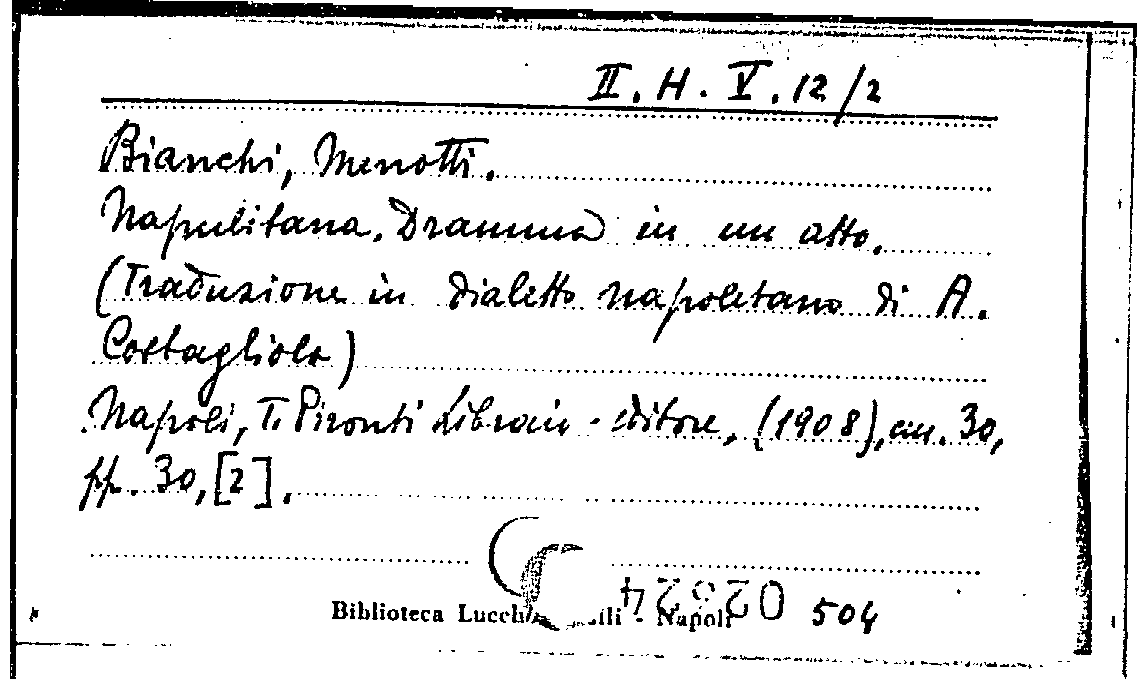 II. H. V. 12/2
Bianchi, Menotti.
Napulitana. Dramma in un atto.
(Traduzione in dialetto napoletano di A.
Costagliola)
Napoli, T. Pironti Libraio-editore, (1908), cm. 30,
pp. 30, [2].
Biblioteca - Napoli
504